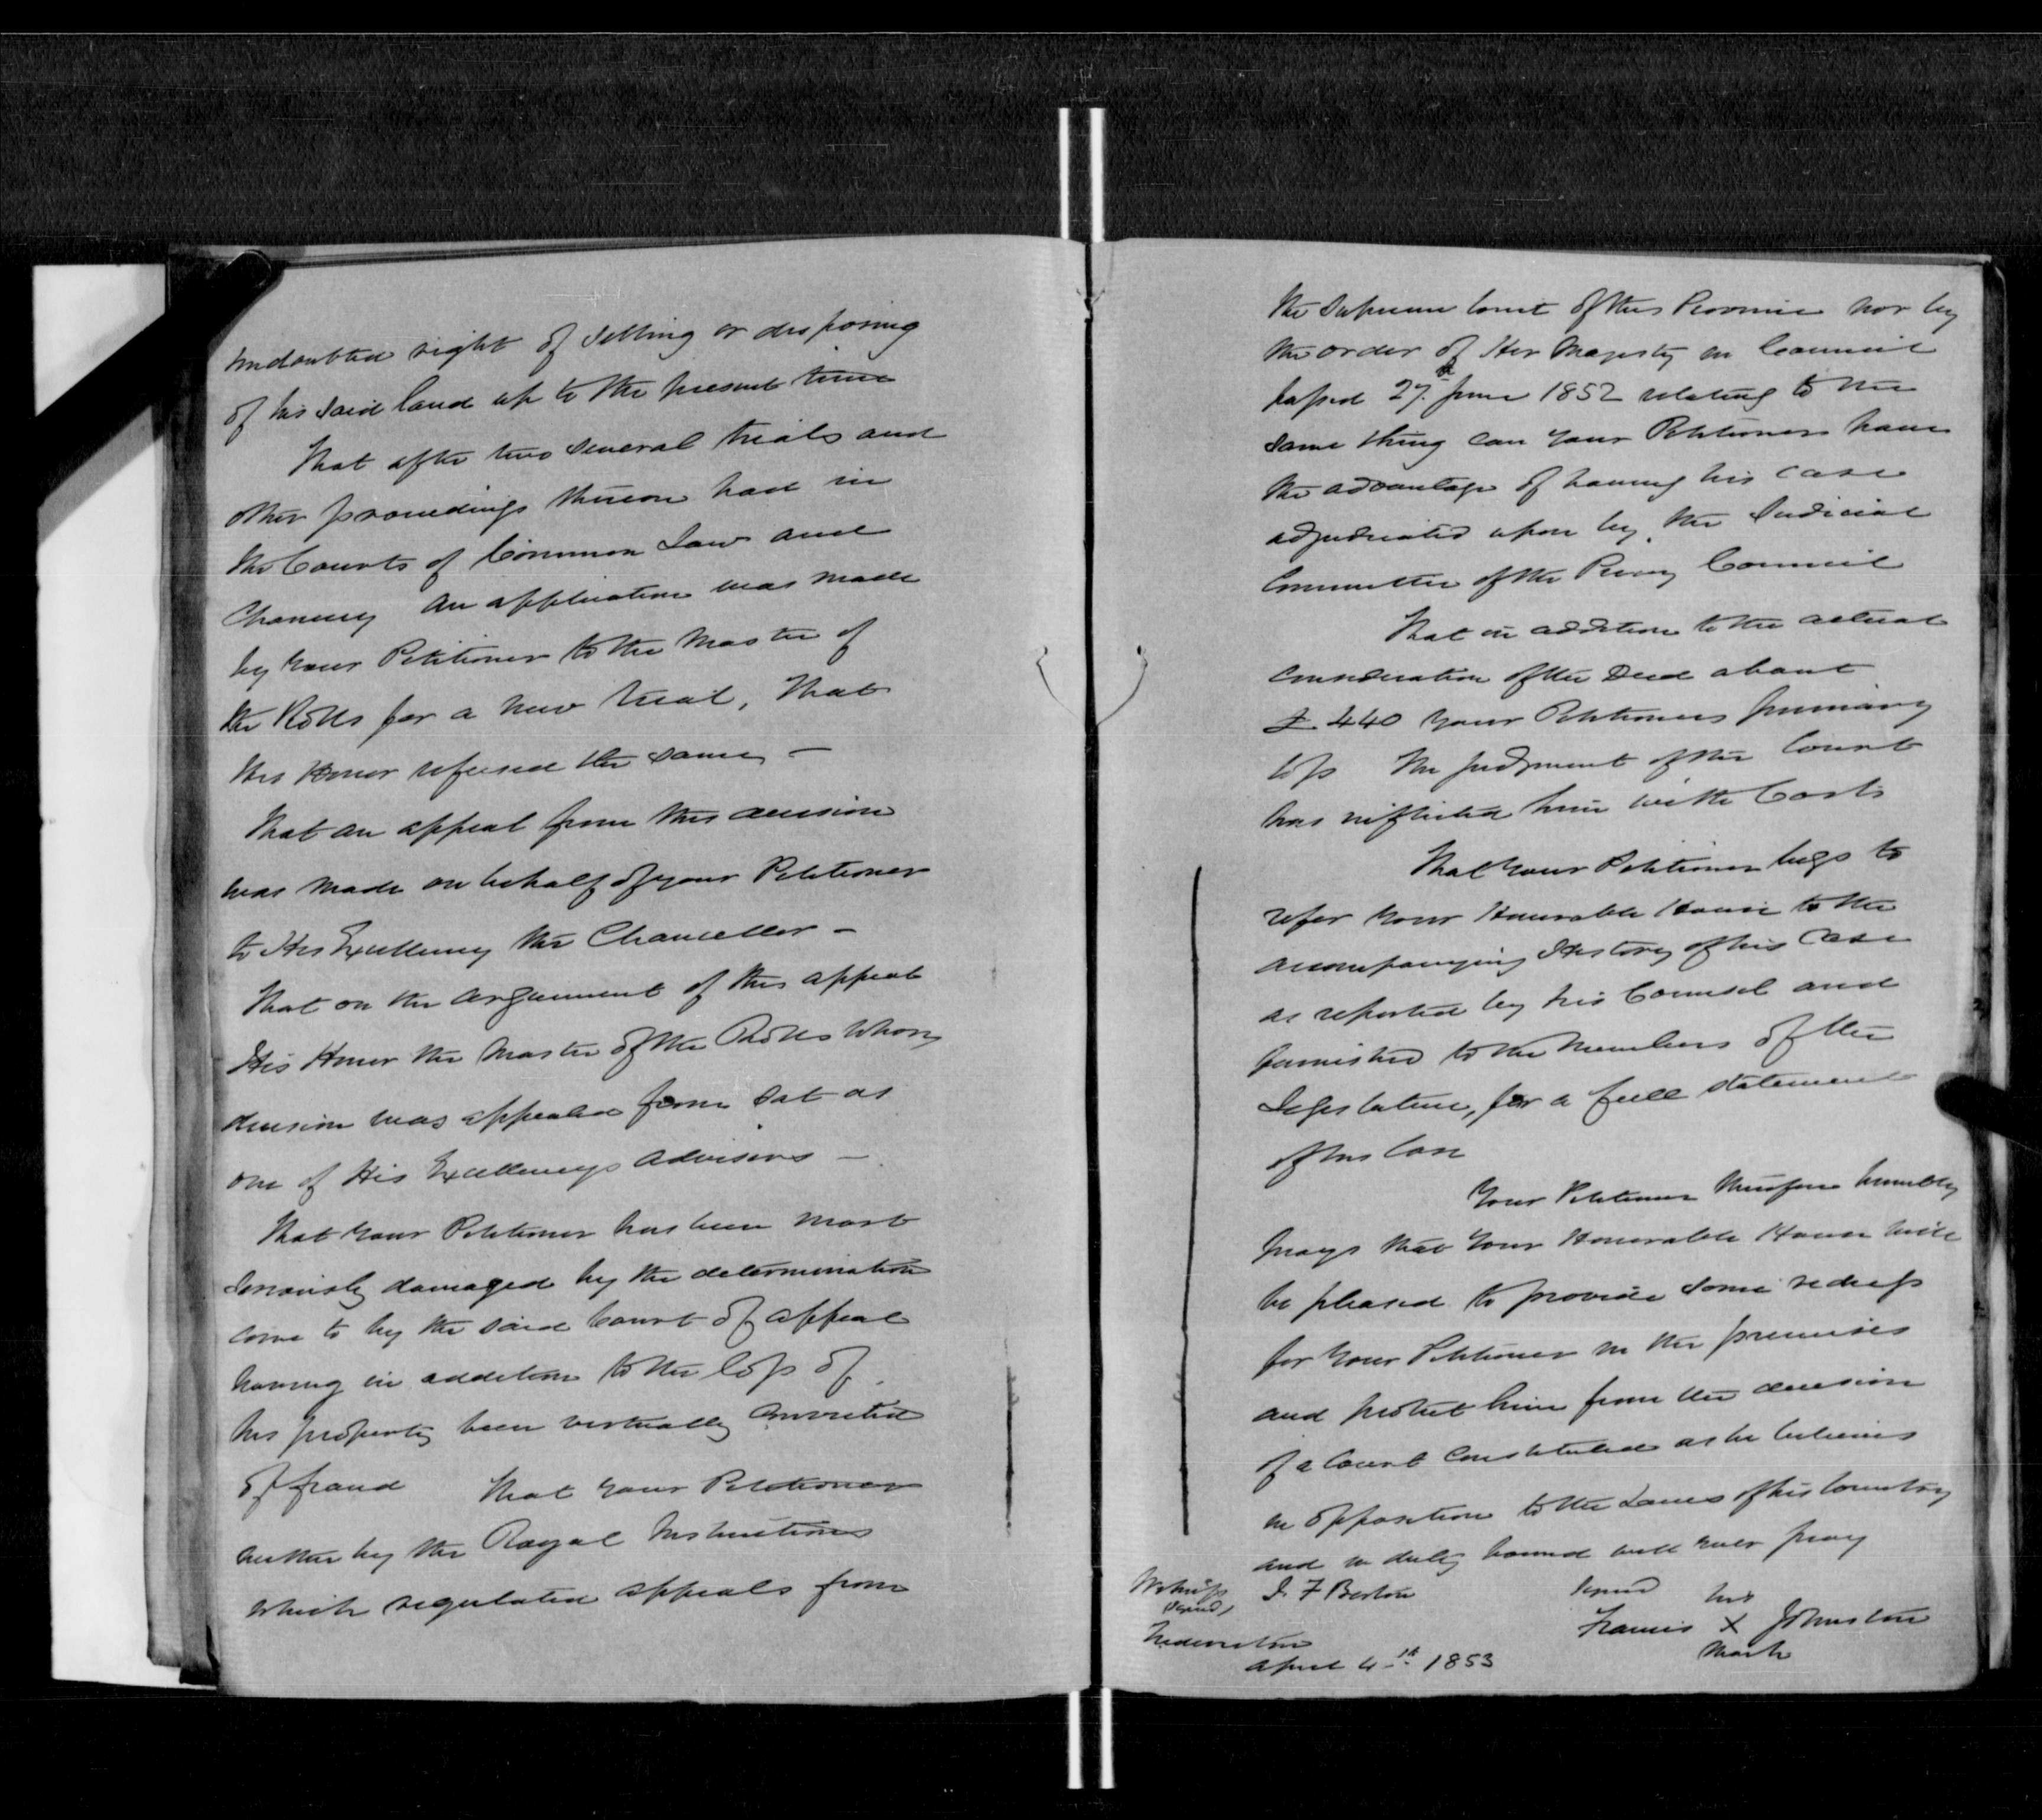 undoubted right of selling or disposing
of his said land up to the present time
That after two several trials and
other proceedings thereon had in
the Courts of Common Law and
Chancery an application was made
by your Petitioner to the Master of
the Rolls for a new trial, That
His Honor refused the same –
That an appeal from this decision
was made on behalf of your Petitioner
to His Excellency the Chancellor –
That on the argument of this appeal
His Honor the Master of the Rolls whose
decision was appealed from sat as
one of His Excellencys advisers –
That your Petitioner has been most
seriously damaged by the determination
come to by the said Court of appeal
having in addition to the loss of
his property been virtually convicted
of fraud That your Petitioner
neither by the Royal Instructions
which regulated appeals from
the Supreme Court of this Province nor by
the order of Her Majesty in Council
passed 27th June 1852 relating to the
same thing can your Petitioner have
the advantage of having his case
adjudicated upon by the Judicial
Committee of the Privy Council
That in addition to the actual
consideration of the Deed about
£ 440 your Petitioners pecuniary
loss the judgment of the Court
has inflicted him with Costs
That your Petitioner begs to
refer your Honorable House to the
accompanying History of his Case
as reported by his Counsel and
furnished to the Members of the
Legislature, for a full statement
of his Case
Your Petitioner therefore humbly
prays that Your Honorable House will
be pleased to provide some redress
for your Petitioner in the premises
and protect him from the decision
of a Court constituted as he believes
in opposition to the Laws of his Country
and in duty bound will ever pray
Witness J. F Berton signed his
(signed)
Francis X Johnston
Fredericton mark
April 4th 1853